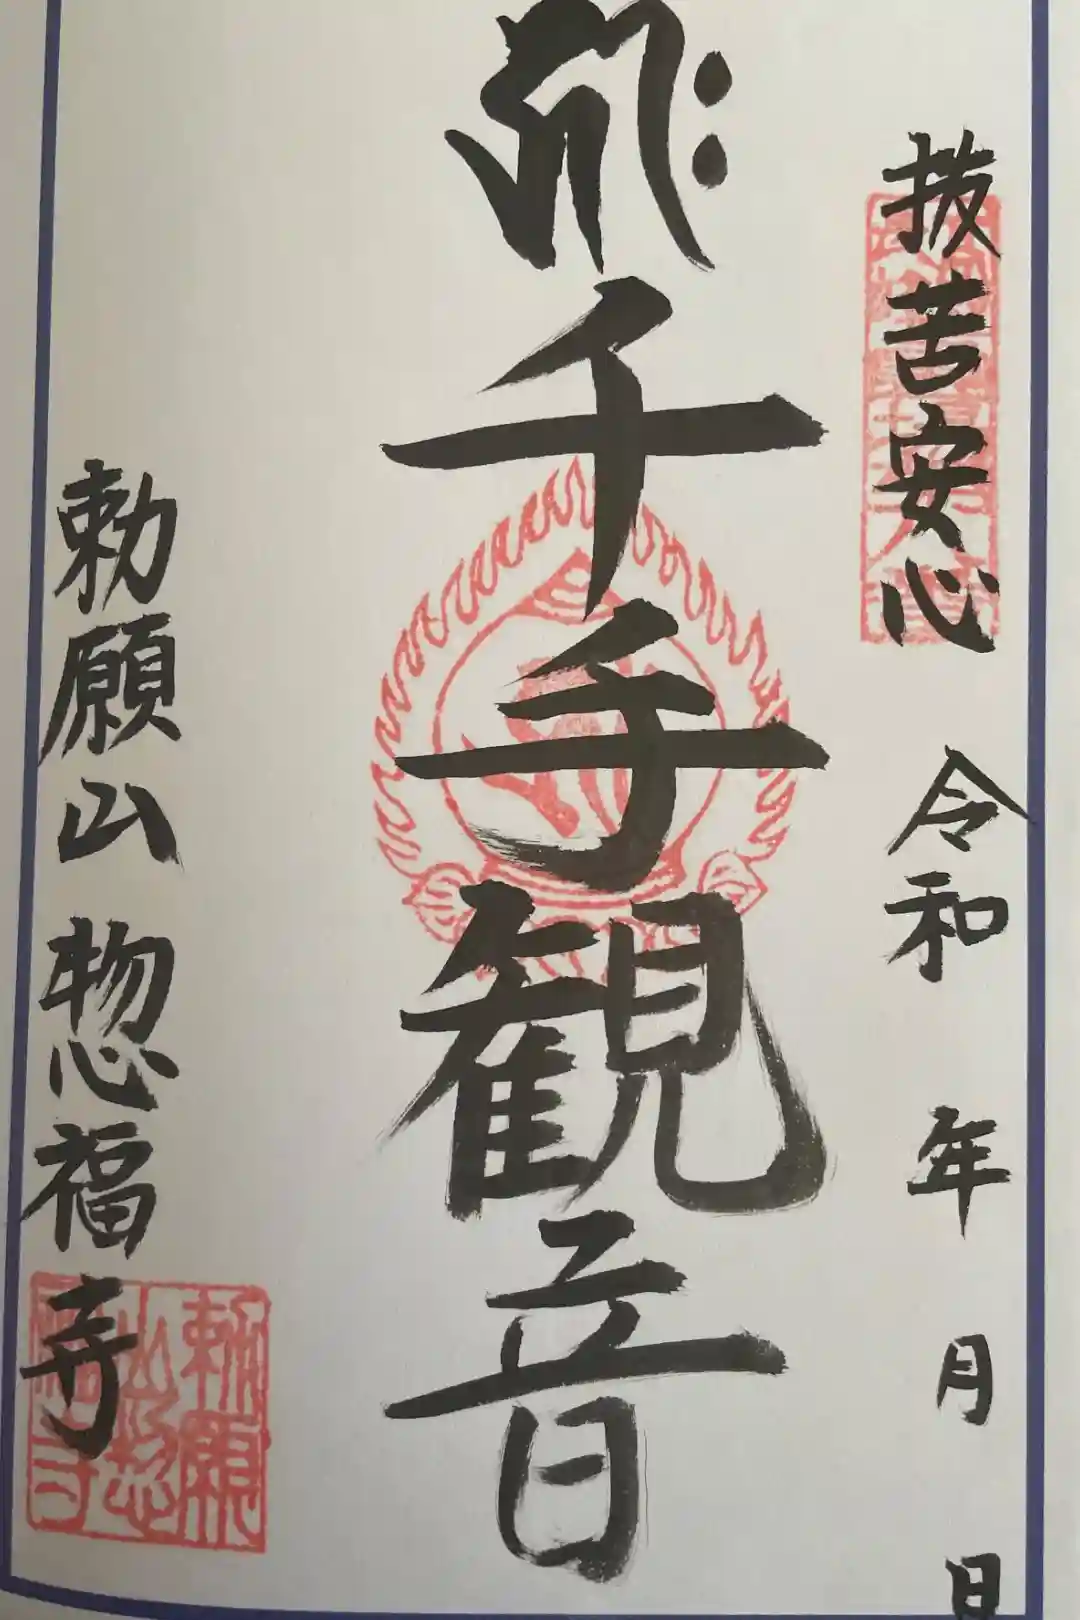 抜苦安心 令和 年 月 日
千手観音
勅願山 惣福寺
勅願
山惣
福寺